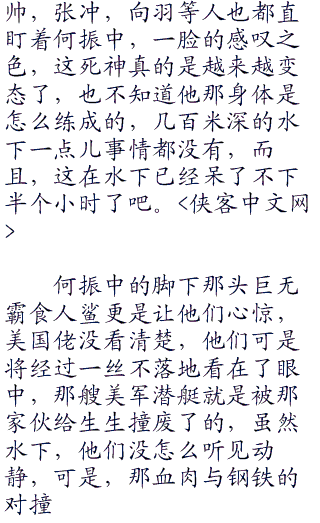 帅，张冲，向羽等人也都直
盯着何振中，一脸的感叹之
色，这死神真的是越来越变
态了，也不知道他那身体是
怎么练成的，几百米深的水
下一点儿事情都没有，而
且，这在水下已经呆了不下
半个小时了吧。<侠客中文网
>
　　何振中的脚下那头巨无
霸食人鲨更是让他们心惊，
美国佬没看清楚，他们可是
将经过一丝不落地看在了眼
中，那艘美军潜艇就是被那
家伙给生生撞废了的，虽然
水下，他们没怎么听见动
静，可是，那血肉与钢铁的
对撞